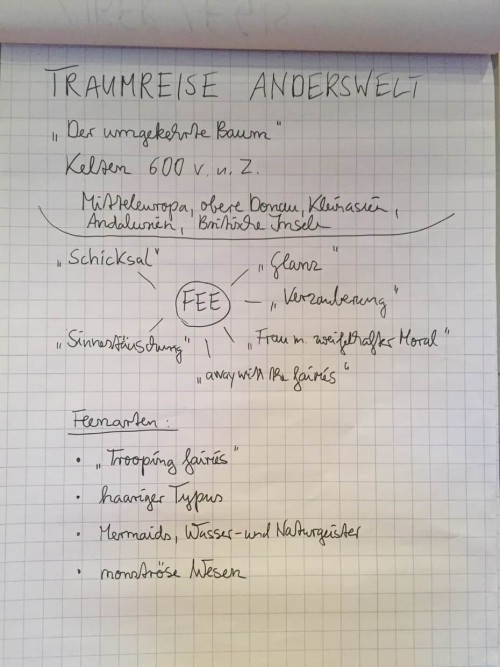 TRAUMREISE ANDERSWELT
„Der umgekehrte Baum"
Kelten 600 v. u. Z.
Mitteleuropa, obere Donau, Kleinasien,
Andalusien, Britische Inseln
„Schicksal"
„Glanz"
FEE
„Verzauberung"
„Sinnestäuschung"
„Frau m. zweifelhafter Moral"
„away with the fairies"
Feenarten:
• „Trooping fairies"
• haariger Typus
• Mermaids, Wasser- und Naturgeister
• monströse Wesen